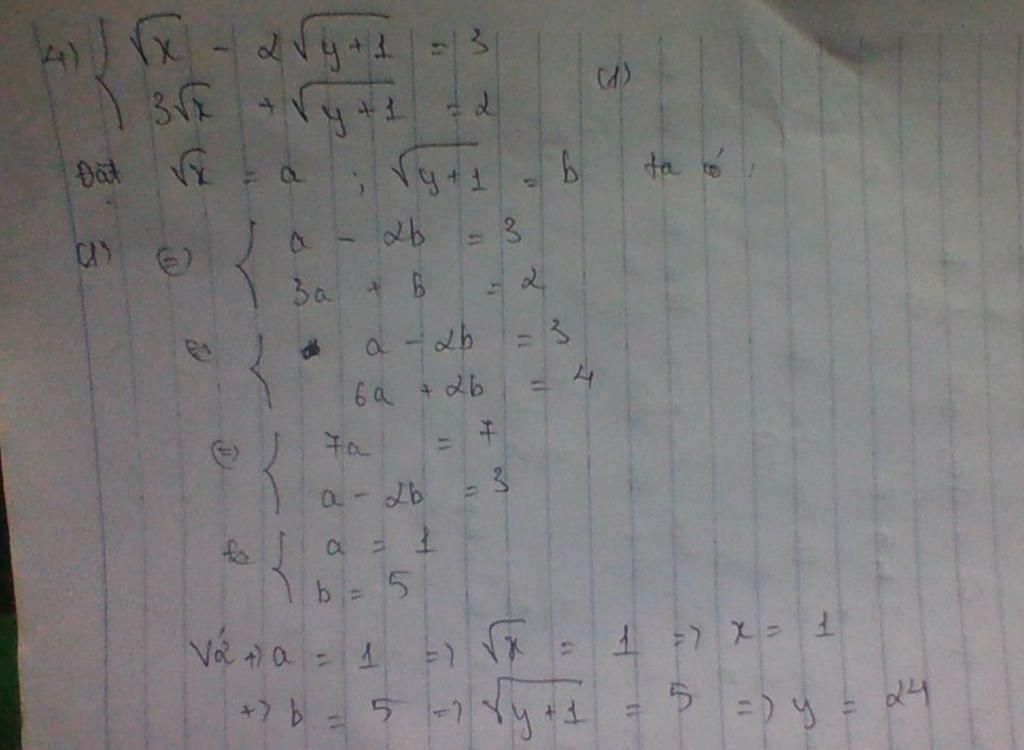 4) { √x - 2√(y+1) = 3
3√x + √(y+1) = 2 (1)
Đặt √x = a ; √(y+1) = b ta có :
(1) (=) { a - 2b = 3
3a + b = 2
{ a - 2b = 3
6a + 2b = 4
(=) { 7a = 7
a - 2b = 3
{ a = 1
b = 5
Với +) a = 1 =) √x = 1 =) x = 1
+) b = 5 =) √(y+1) = 5 =) y = 24